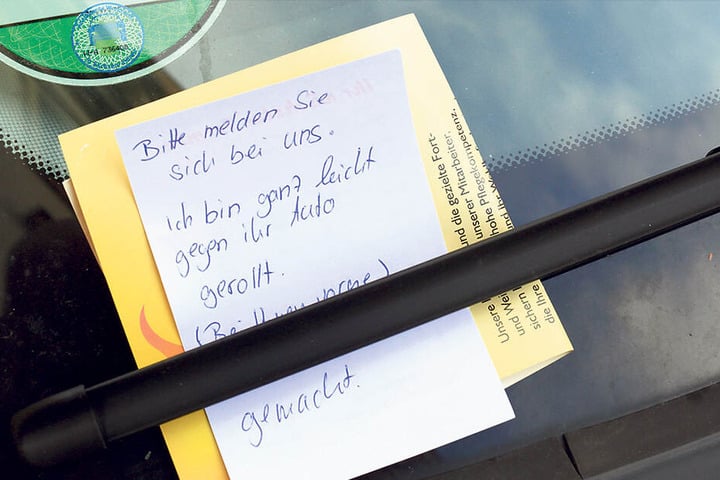 Bitte melden Sie
sich bei uns.
ich bin ganz leicht
gegen ihr Auto
gerollt.
(Bei Ihnen vorne)
gemacht.
und die gezielte Fort-
unserer Mitarbeiter.
hohe Pflegekompetenz,
und Ihr
Unsere
und Wei
sichern
die Ihre